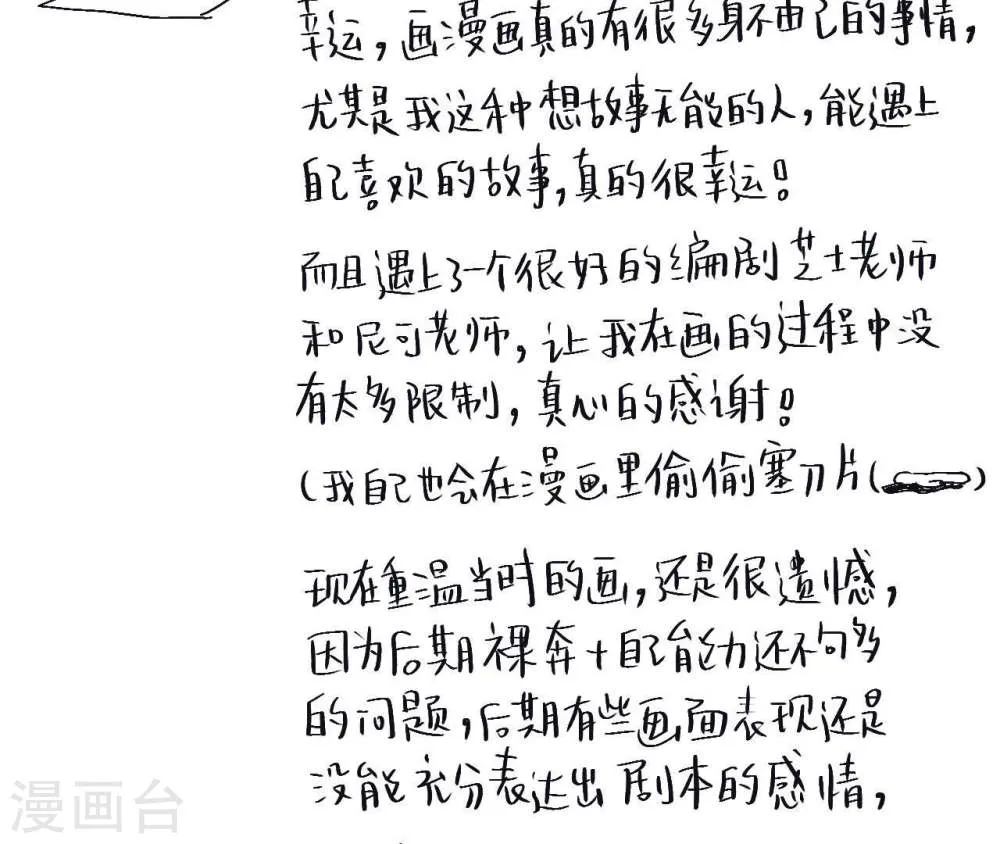 幸运，画漫画真的有很多身不由己的事情，
尤其是我这种想故事无能的人，能遇上
自己喜欢的故事，真的很幸运！
而且遇上了一个很好的编剧芝士老师
和尼可老师，让我在画的过程中没
有太多限制，真心的感谢！
（我自己也会在漫画里偷偷塞刀片（）
现在重温当时的画，还是很遗憾，
因为后期裸奔+自己能力还不够
的问题，后期有些画面表现还是
没能充分表达出剧本的感情，
漫画台